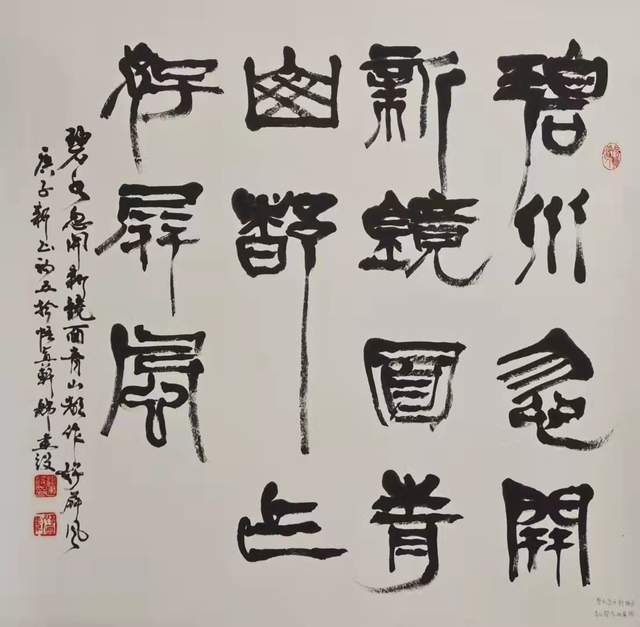 碧水忽開
新鏡面青
山都作
好屏風
碧水忽開新鏡面青山都作好屏風
庚子新正初五於悟真軒